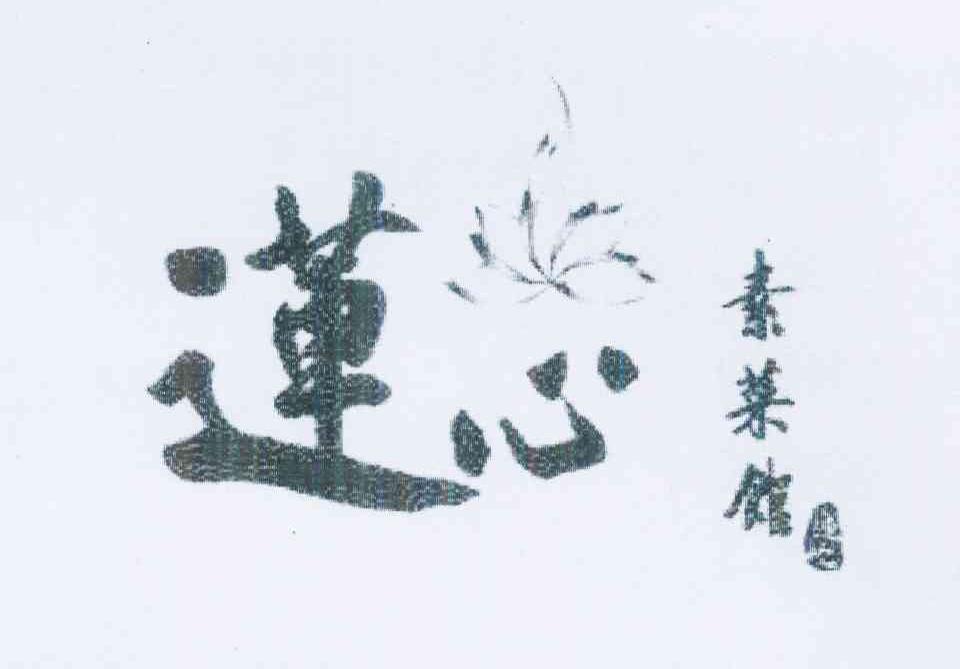 蓮心
素菜館